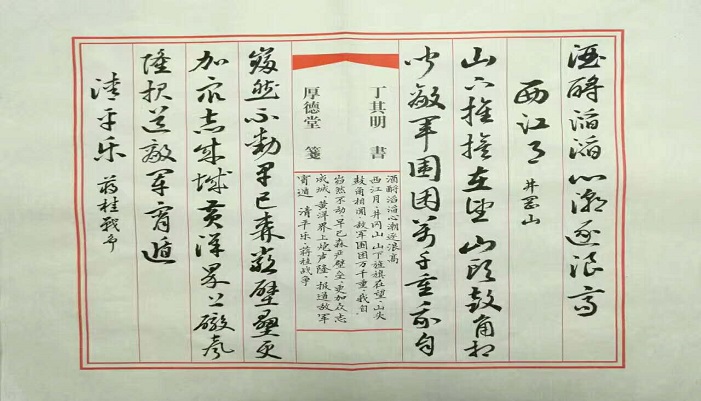 酒酹滔滔心潮逐浪高
西江月 井岡山
山下旌旗在望山头鼓角相
闻敵军围困萬千重我自
丁其明 書
厚德堂 箋
酒酹滔滔心潮逐浪高
西江月·井冈山 山下旌旗在望,山头
鼓角相闻.敌军围困万千重,我自
岿然不动.早已森严壁垒,更加众志
成城.黄洋界上炮声隆,报道敌军
宵遁. 清平乐·蒋桂战争
巋然不動早已森严壁壘更
加众志成城黄洋界上礮声
隆报道敵军宵遁
清平乐 蒋桂戰争